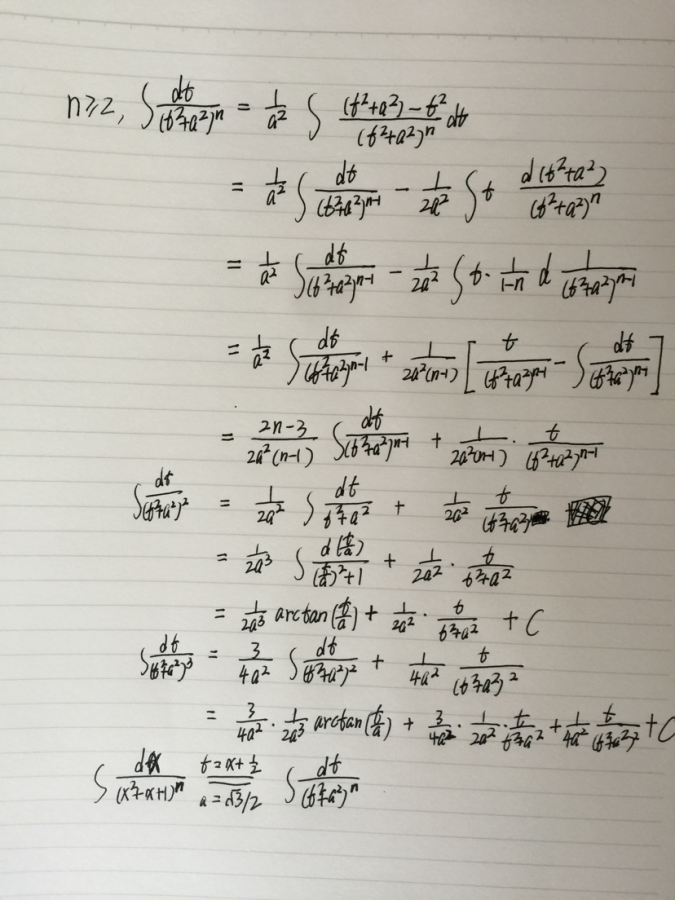 n≥2, ∫ dt/(t²+a²)ⁿ = 1/a² ∫ ((t²+a²)-t²)/(t²+a²)ⁿ dt
= 1/a² ∫ dt/(t²+a²)ⁿ⁻¹ - 1/2a² ∫ t d(t²+a²)/(t²+a²)ⁿ
= 1/a² ∫ dt/(t²+a²)ⁿ⁻¹ - 1/2a² ∫ t · 1/(1-n) d 1/(t²+a²)ⁿ⁻¹
= 1/a² ∫ dt/(t²+a²)ⁿ⁻¹ + 1/2a²(n-1) [ t/(t²+a²)ⁿ⁻¹ - ∫ dt/(t²+a²)ⁿ⁻¹ ]
= (2n-3)/2a²(n-1) ∫ dt/(t²+a²)ⁿ⁻¹ + 1/2a²(n-1) · t/(t²+a²)ⁿ⁻¹
∫ dt/(t²+a²)² = 1/2a² ∫ dt/(t²+a²) + 1/2a² t/(t²+a²)
= 1/2a³ ∫ d(t/a)/((t/a)²+1) + 1/2a² · t/(t²+a²)
= 1/2a³ arctan(t/a) + 1/2a² · t/(t²+a²) + C
∫ dt/(t²+a²)³ = 3/4a² ∫ dt/(t²+a²)² + 1/4a² t/(t²+a²)²
= 3/4a² · 1/2a³ arctan(t/a) + 3/4a² · 1/2a² · t/(t²+a²) + 1/4a² t/(t²+a²)² + C
∫ dx/(x²+x+1)ⁿ = (t=x+1/2, a=√3/2) ∫ dt/(t²+a²)ⁿ